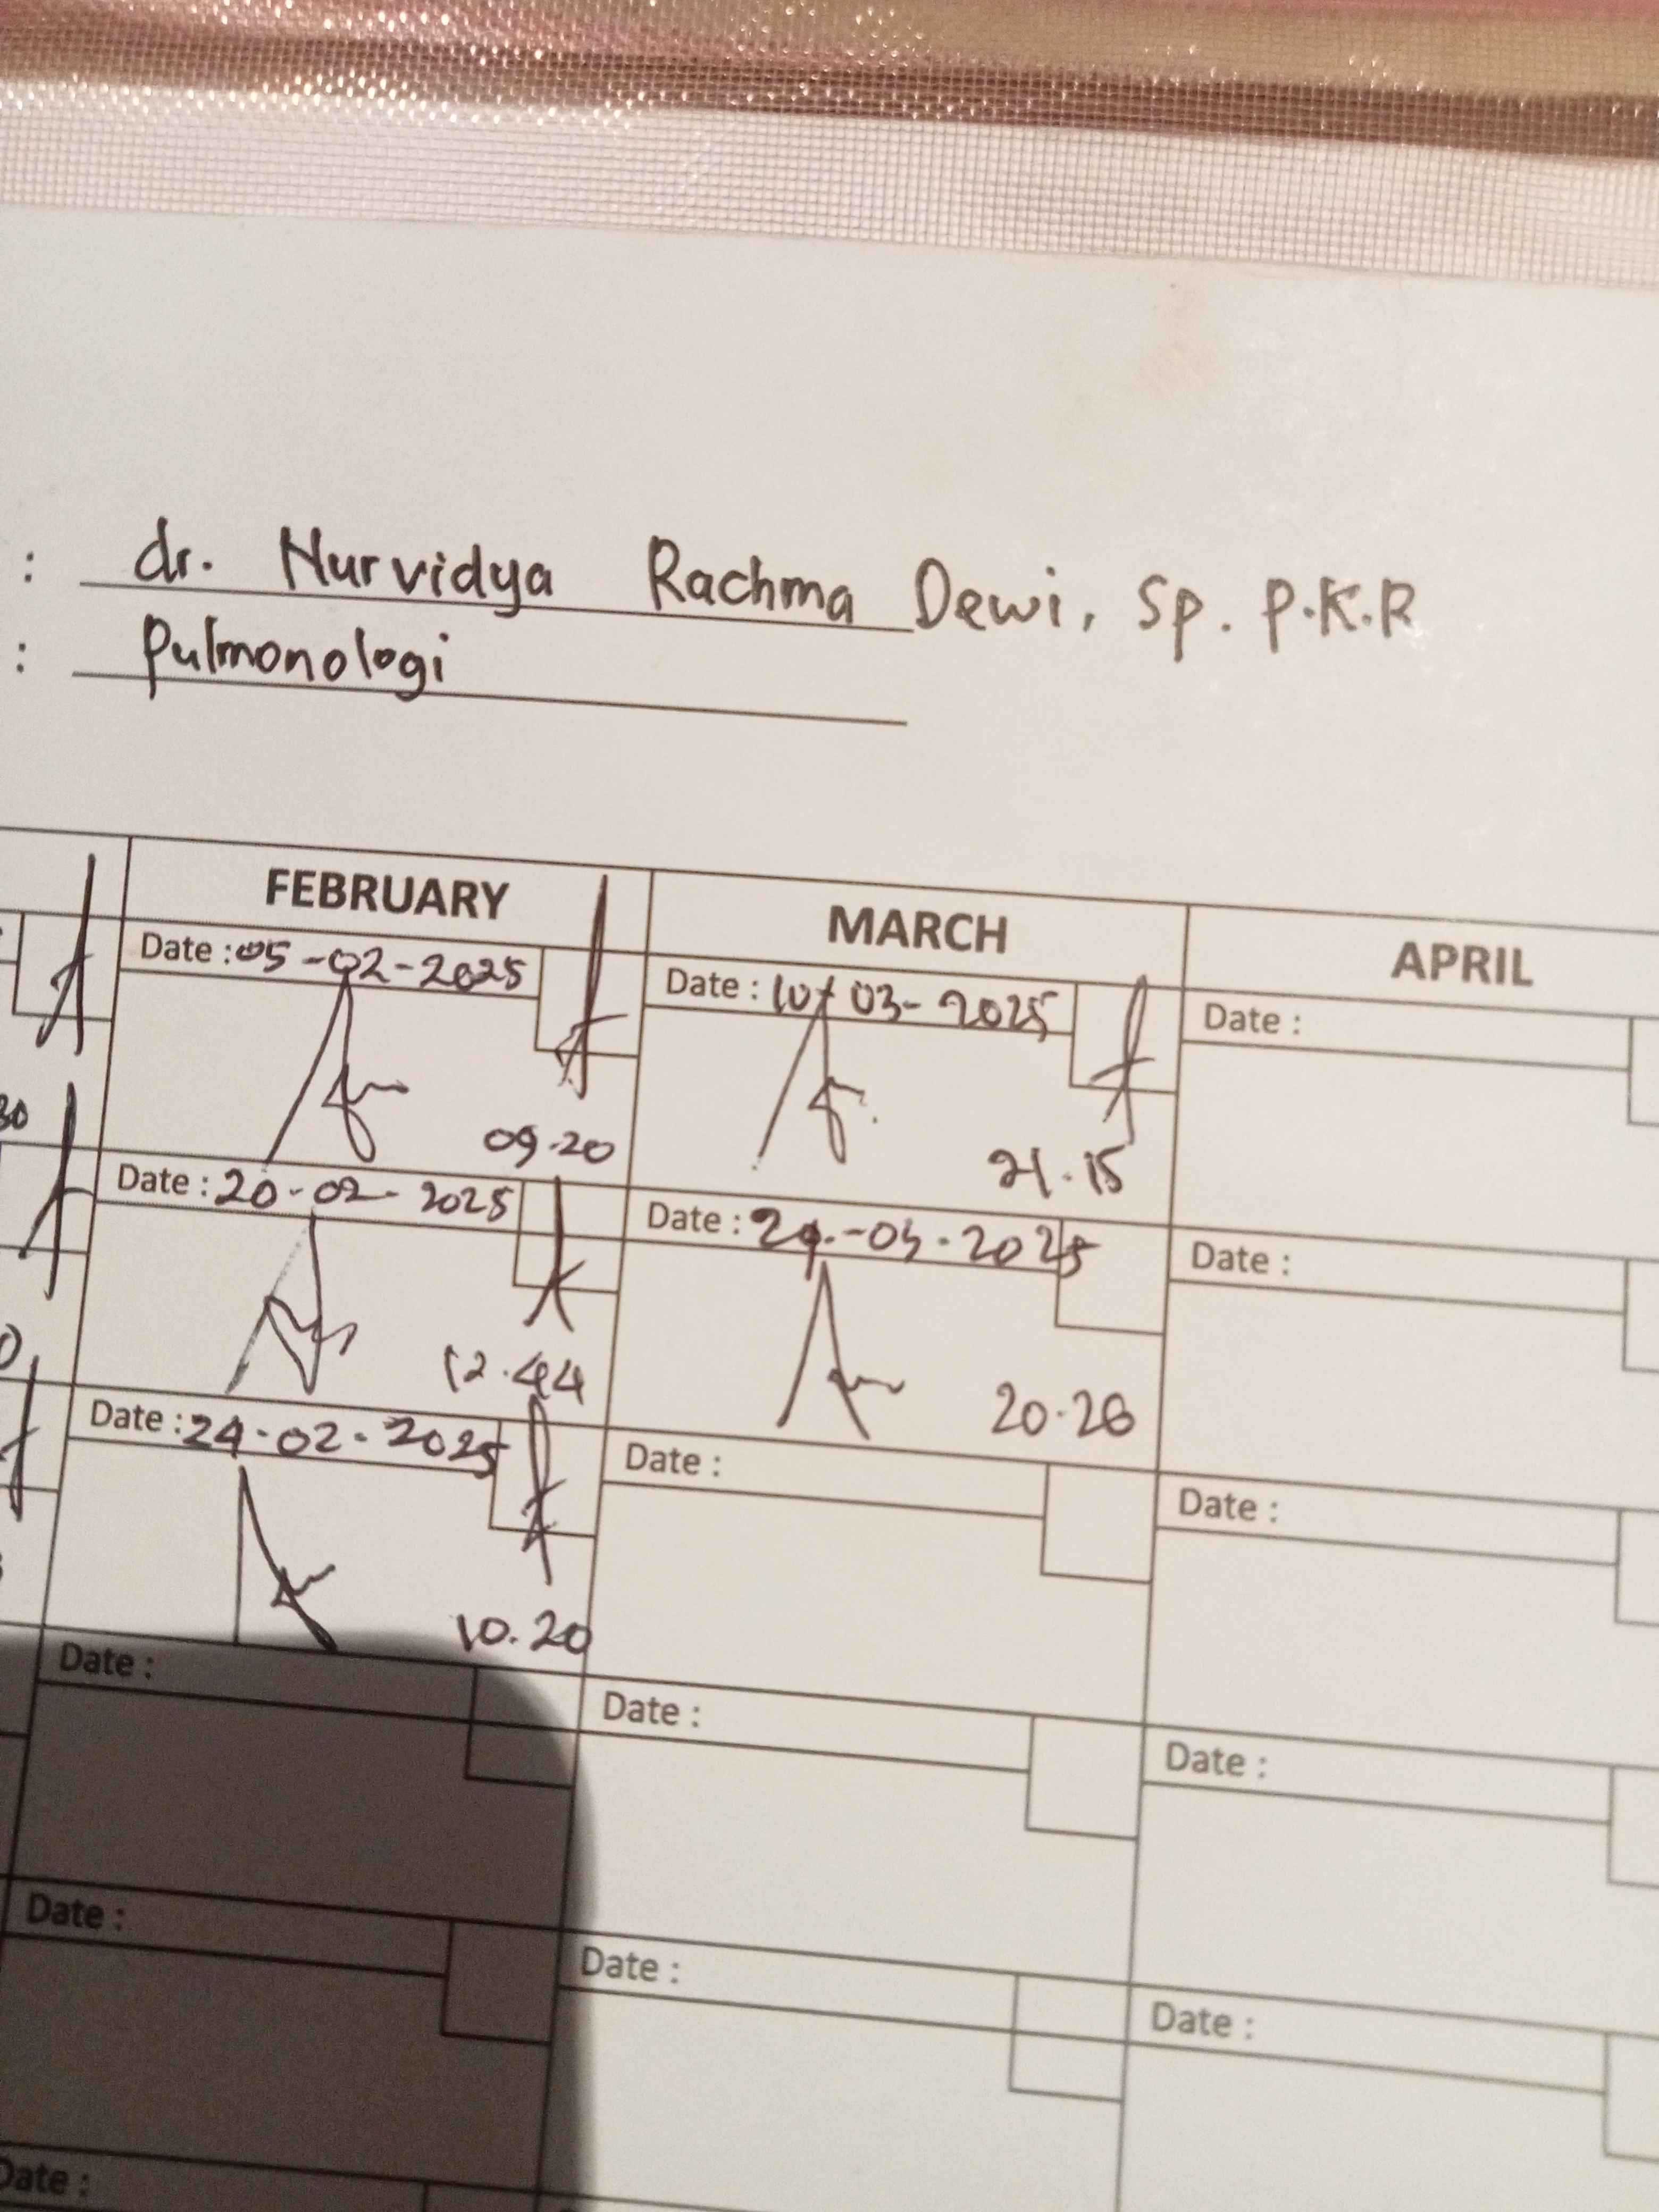 : dr. Nurvidya Rachma Dewi, Sp. P.K.R
: Pulmonologi
FEBRUARY MARCH APRIL
Date : 05-02-2025
09.20
Date : 10-03-2025
21.15
Date :
30
Date : 20-02-2025
12.44
Date : 24.-03.2025
20.26
Date :
Date : 24-02-2025
10.20
Date :
Date :
Date :
Date :
Date :
Date :
Date :
Date :
Date :